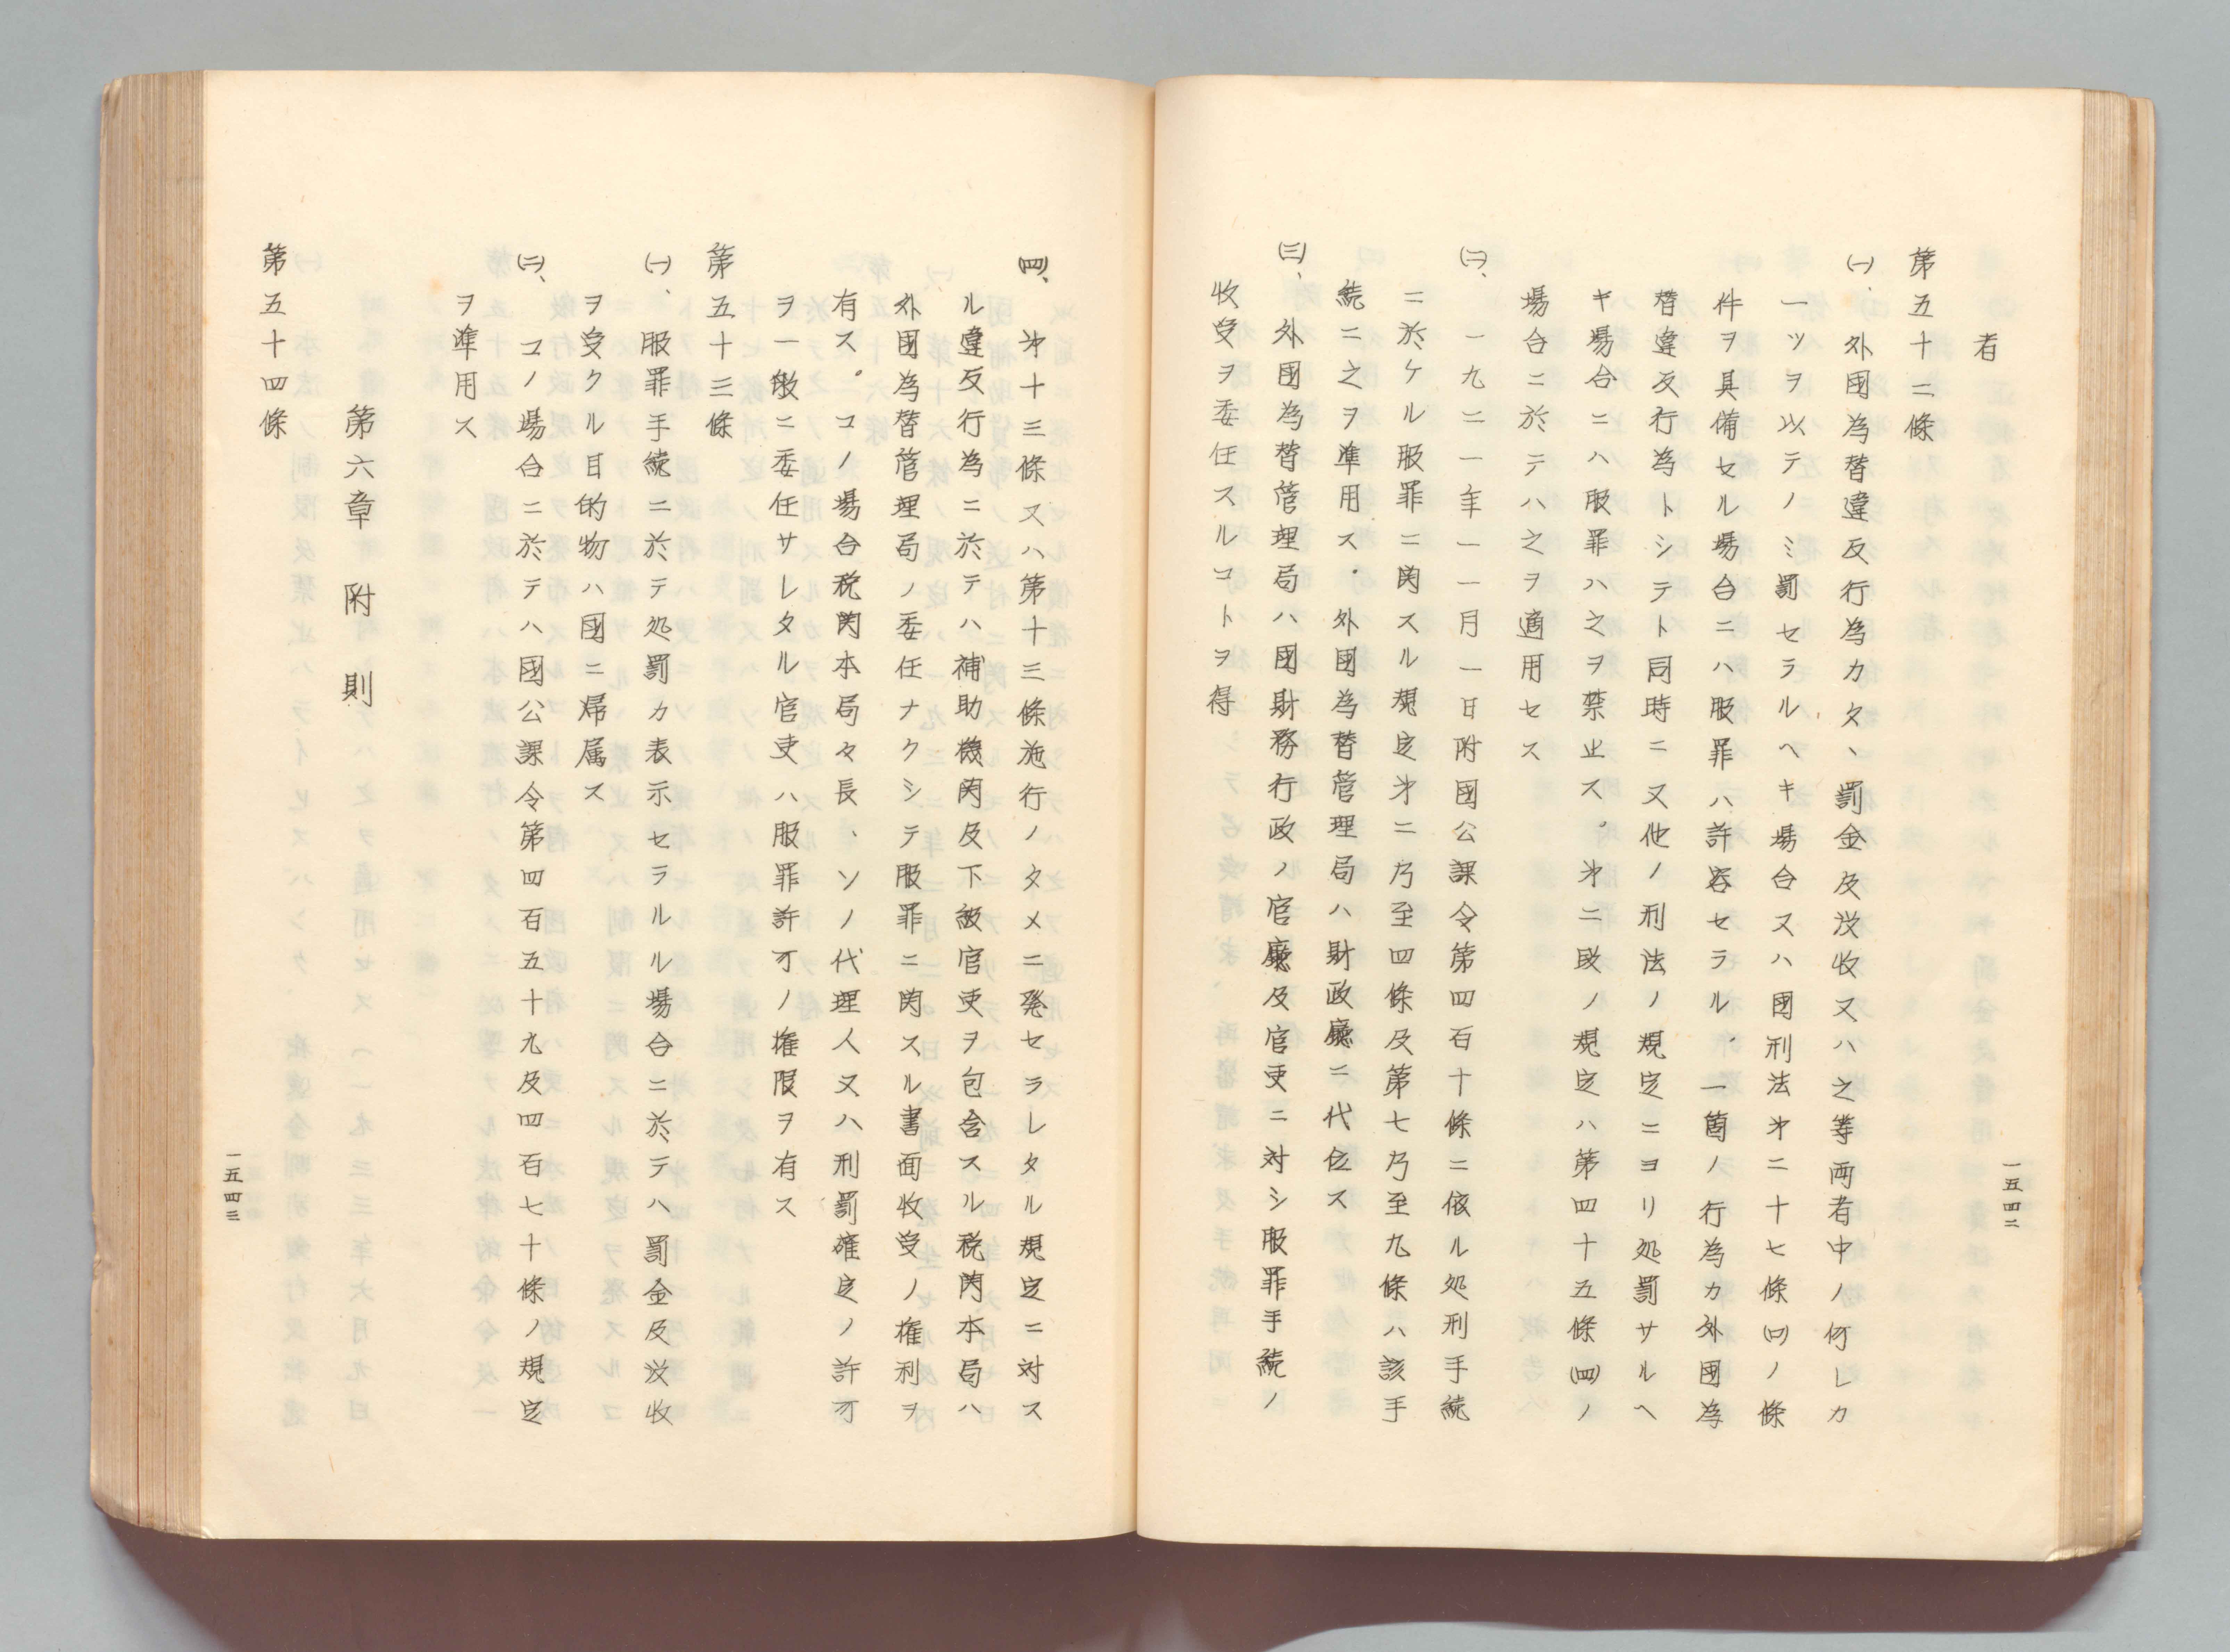 者
第五十二條
㈠、外國為替違反行為カタヽ罰金及沒收又ハ之等両者中ノ何レカ
一ツヲ以テノミ罰セラルヘキ場合又ハ國刑法㐧二十七條㈡ノ條
件ヲ具備セル場合ニハ服罪ハ許容セラル、一箇ノ行為カ外國為
替違反行為トシテト同時ニ又他ノ刑法ノ規定ニヨリ処罰サルヘ
キ場合ニハ服罪ハ之ヲ禁止ス。㐧二段ノ規定ハ第四十五條㈣ノ
場合ニ於テハ之ヲ適用セス
㈡、一九二一年一一月一日附國公課令第四百十條ニ依ル処刑手続
ニ於ケル服罪ニ関スル規定㐧二乃至四條及第七乃至九條ハ該手
続ニ之ヲ準用ス．外國為替管理局ハ財政廳ニ代位ス
㈢、外國為替管理局ハ國財務行政ノ官廳及官吏ニ対シ服罪手続ノ
收受ヲ委任スルコトヲ得
一五四二
㈣、㐧十三條又ハ第十三條施行ノタメニ発セラレタル規定ニ対ス
ル違反行為ニ於テハ補助機関及下級官吏ヲ包含スル税関本局ハ
外國為替管理局ノ委任ナクシテ服罪ニ関スル書面收受ノ権利ヲ
有ス。コノ場合税関本局々長、ソノ代理人又ハ刑罰確定ノ許可
ヲ一般ニ委任サレタル官吏ハ服罪許可ノ権限ヲ有ス
第五十三條
㈠、服罪手続ニ於テ処罰カ表示セラルル場合ニ於テハ罰金及沒收
ヲ受クル目的物ハ國ニ帰属ス
㈡、コノ場合ニ於テハ國公課令第四百五十九及四百七十條ノ規定
ヲ準用ス
第六章　附　則
第五十四條
一五四三